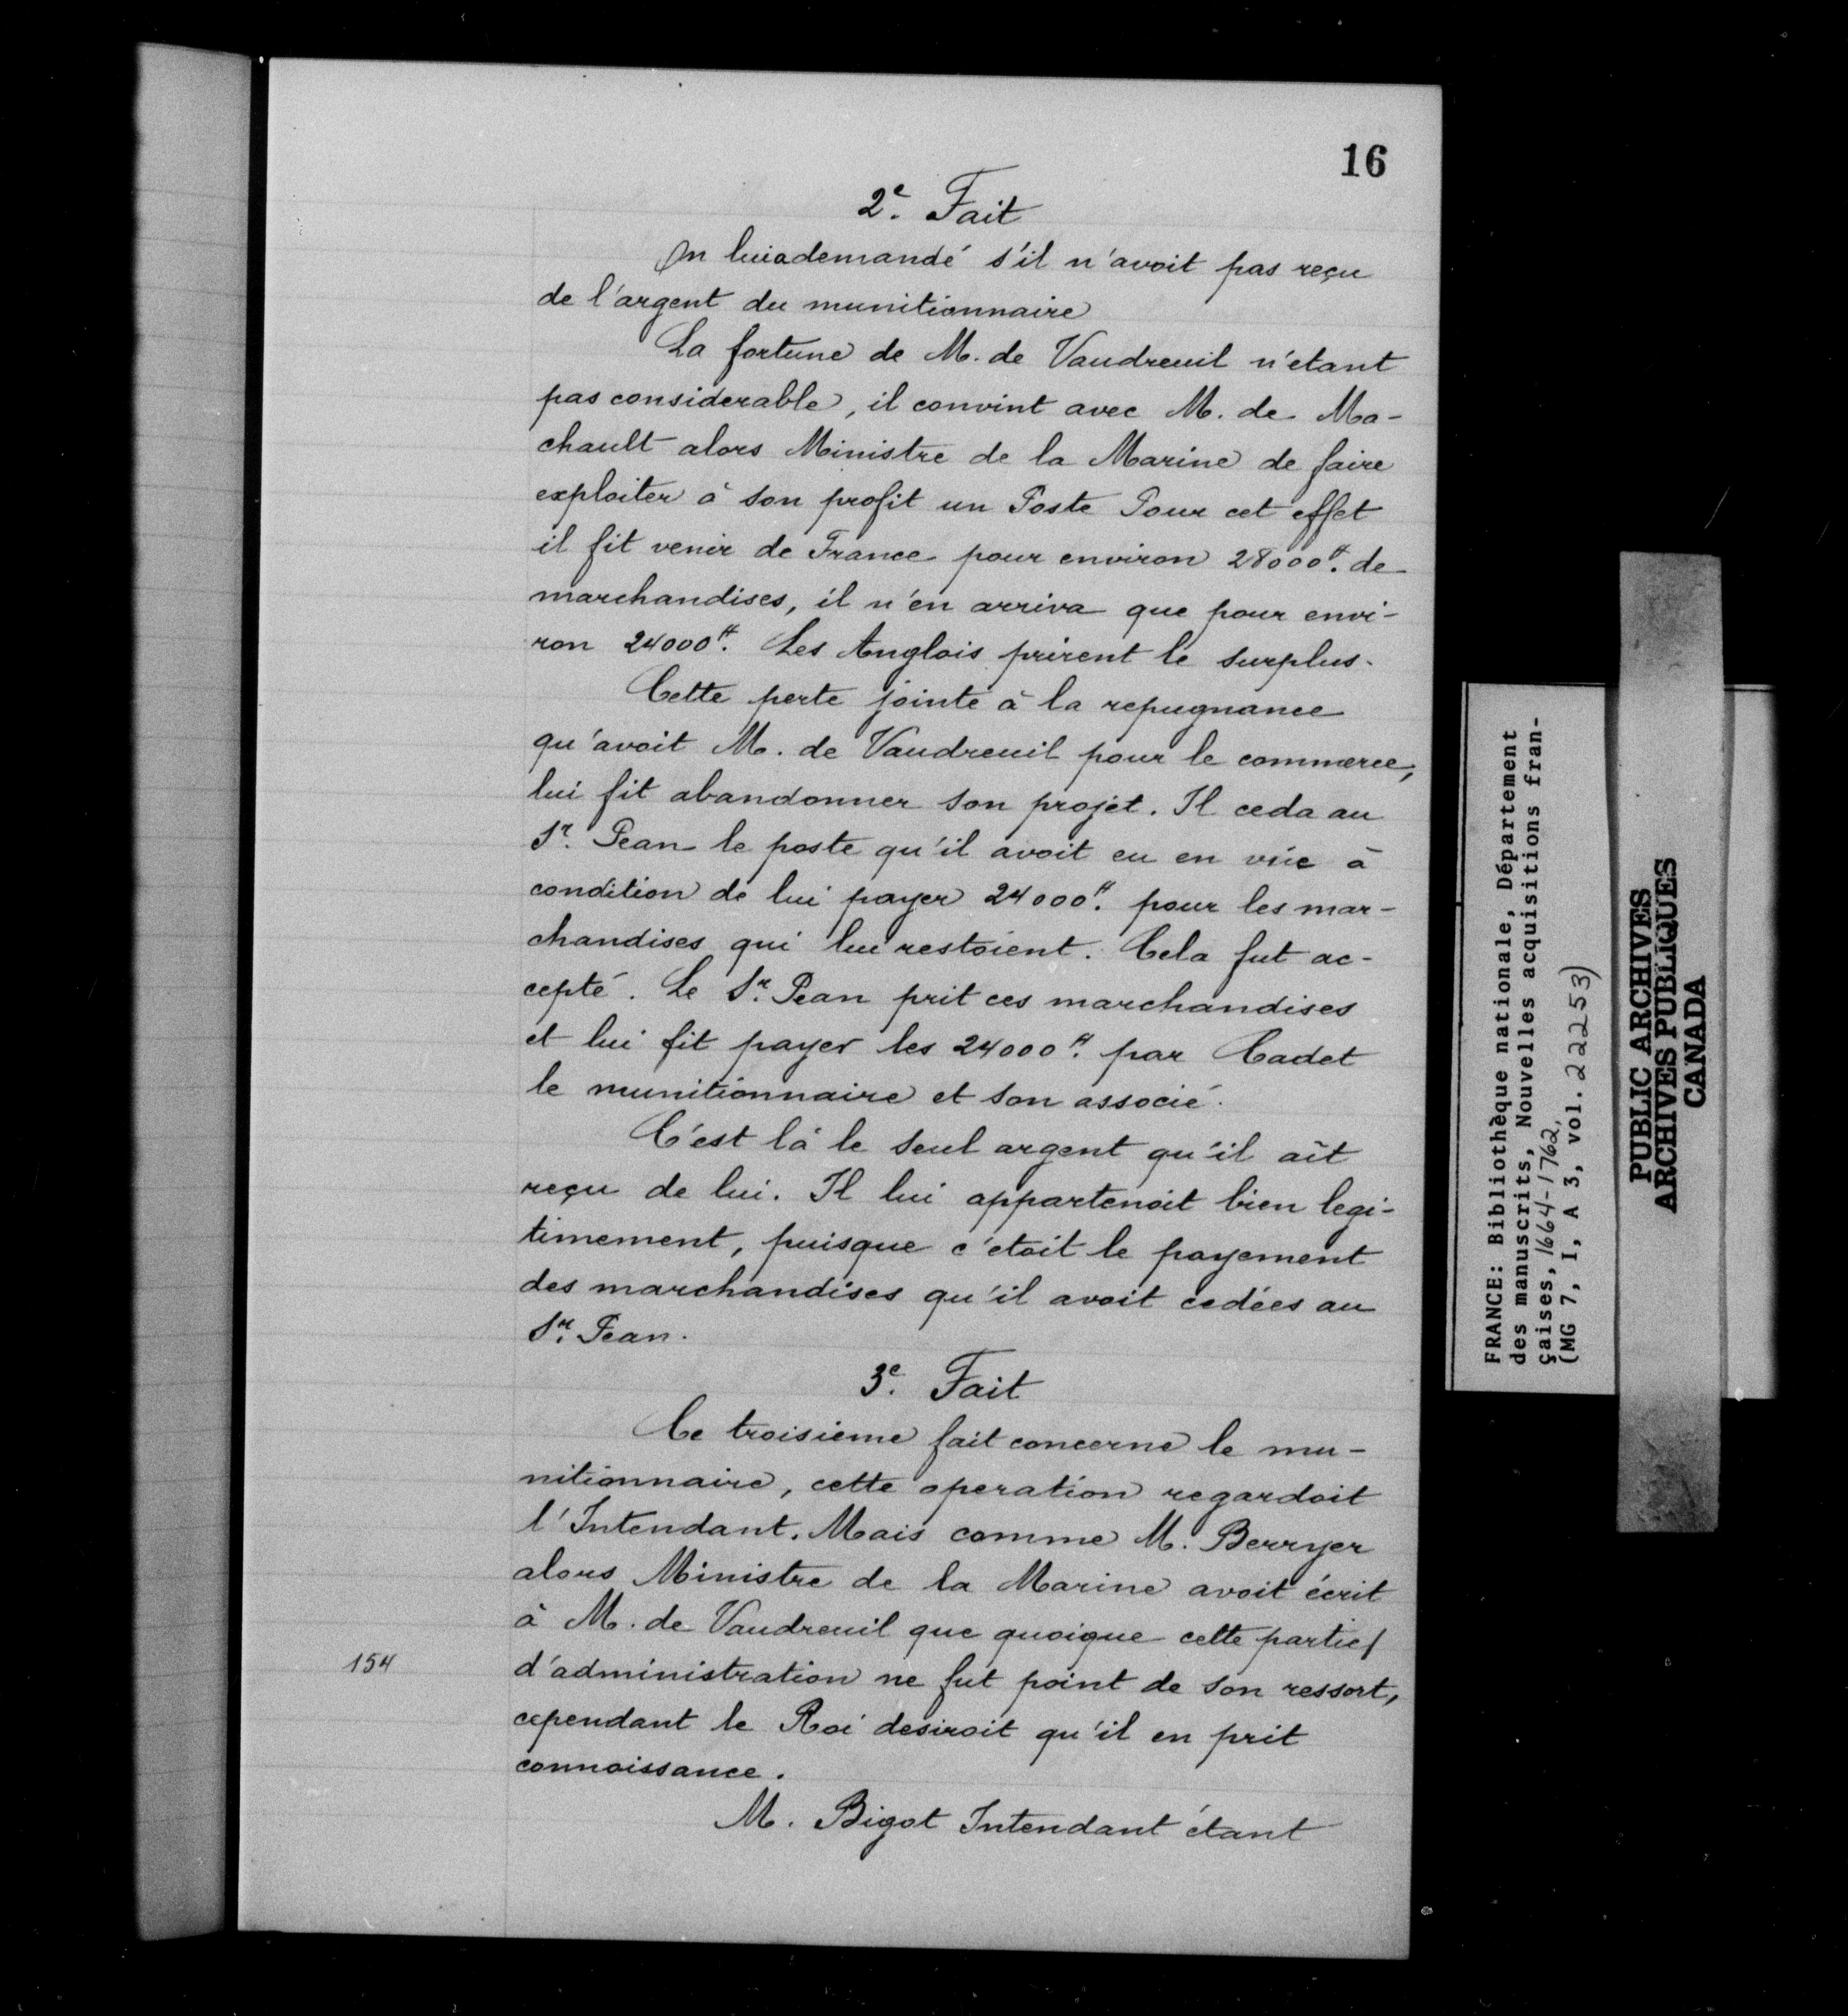 16
2e. Fait
On lui a demandé s'il n'avoit pas reçu
de l'argent du munitionnaire
La fortune de M. de Vaudreuil n'etant
pas considerable, il convint avec M. de Ma-
chault alors Ministre de la Marine de faire
exploiter à son profit un Poste Pour cet effet
il fit venir de France pour environ 28000tt. de
marchandises, il n'en arriva que pour envi-
ron 24000tt. Les Anglois prirent le surplus.
Cette perte jointe à la repugnance
qu'avoit M. de Vaudreuil pour le commerce,
lui fit abandonner son projet. Il ceda au
Sr. Pean le poste qu'il avoit eu en vüe à
condition de lui payer 24000tt. pour les mar-
chandises qui lui restoient. Cela fut ac-
cepté. Le Sr. Pean prit ces marchandises
et lui fit payer les 24000tt. par Cadet
le munitionnaire et son associé.
C'est là le seul argent qu'il ait
reçu de lui. Il lui appartenoit bien legi-
timement, puisque c'etoit le payement
des marchandises qu'il avoit cedées au
Sr. Pean.
3e. Fait
Ce troisieme fait concerne le mu-
nitionnaire, cette operation regardoit
l'Intendant. Mais comme M. Berryer
alors Ministre de la Marine avoit écrit
à M. de Vaudreuil que quoique cette partie/
154 d'administration ne fut point de son ressort,
cependant le Roi desiroit qu'il en prit
connoissance.
M. Bigot Intendant étant
FRANCE: Bibliothèque nationale, Département
des manuscrits, Nouvelles acquisitions fran-
çaises, 1664-1762,
(MG 7, I, A 3, vol. 22253)
PUBLIC ARCHIVES
ARCHIVES PUBLIQUES
CANADA